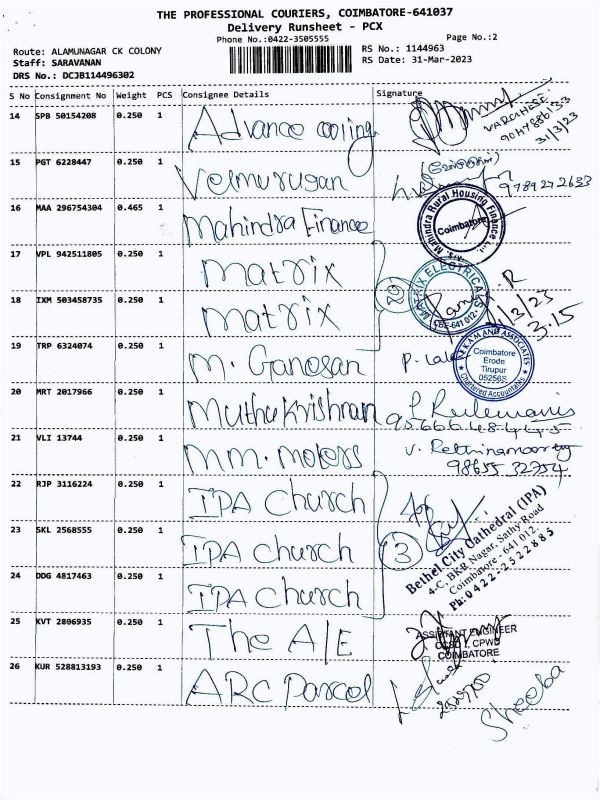 THE PROFESSIONAL COURIERS, COIMBATORE-641037
Delivery Runsheet - PCX
Phone No.:0422-3505555
Page No.:2
Route: ALAMUNAGAR CK COLONY
RS No.: 1144963
Staff: SARAVANAN
RS Date: 31-Mar-2023
DRS No.: DCJB114496302
S No Consignment No Weight PCS Consignee Details Signature
14 SPB 50154208 0.250 1 Advance cooling
VARGHESE
31/3/23
15 PGT 6228447 0.250 1 Velmurugan
9789272633
16 MAA 296754304 0.465 1 Mahindra Finance
Mahindra Rural Housing Finance Ltd.,
Coimbatore
17 VPL 942511805 0.250 1 Matrix
MATRIX ELECTRICALS
CBE-641 012.
18 IXM 503458735 0.250 1 Matrix
3.15
19 TRP 6324074 0.250 1 M. Ganesan
AND ASSOCIATES
Coimbatore
Erode
Tirupur
05256S
Chartered Accountants
20 MRT 2017966 0.250 1 Muthukrishnan
21 VLI 13744 0.250 1 M.M. Motors
98655 32754
22 RJP 3116224 0.250 1 IPA Church
23 SKL 2568555 0.250 1 IPA Church
3
24 DDG 4817463 0.250 1 IPA Church
Bethel City Cathedral (IPA)
4-C, BKR Nagar, Sathy Road
Coimbatore - 641 012.
Ph: 0422-2522885
25 KVT 2806935 0.250 1 The A/E
ASSISTANT ENGINEER
CPWD
COIMBATORE
26 KUR 528813193 0.250 1 ARC Parcel
Sheeba